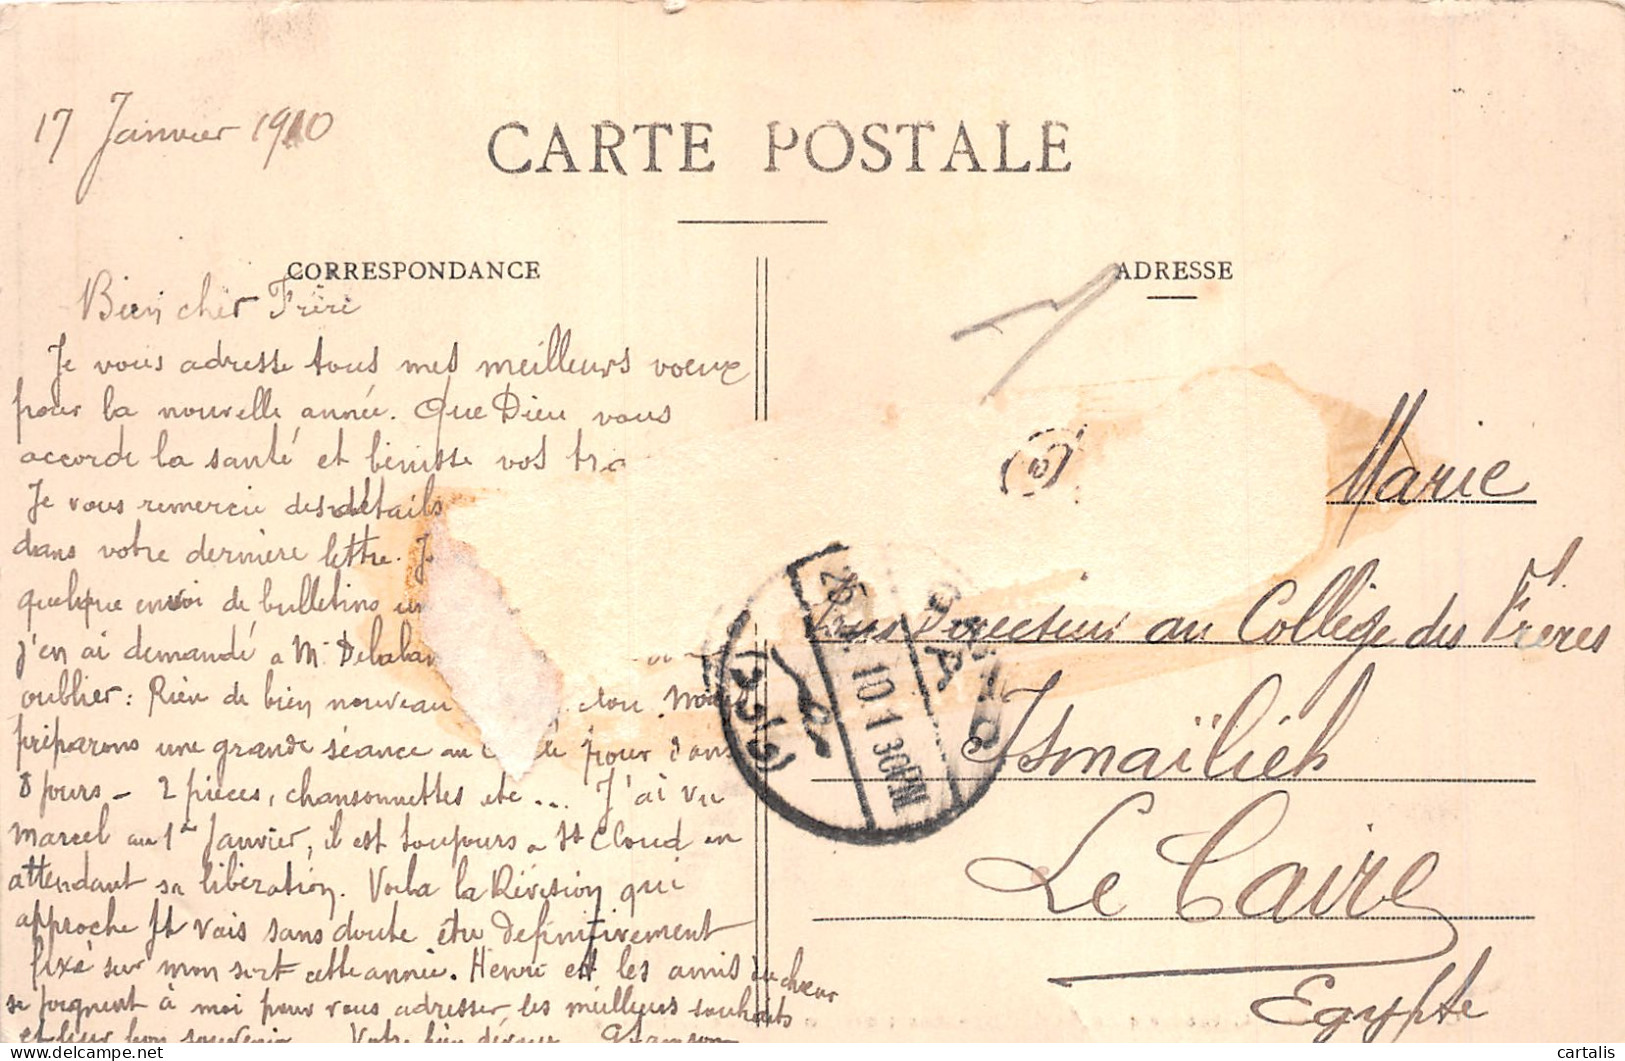 17 Janvier 1910
CARTE POSTALE
CORRESPONDANCE
Bien cher Frère
Je vous adresse tous mes meilleurs voeux
pour la nouvelle année. Que Dieu vous
accorde la santé et bénisse vos
Je vous remercie des détails
dans votre dernière lettre.
quelque envoi de bulletins
j'en ai demandé a Mr
oublier : Rien de bien nouveau Nous
préparons une grande séance au pour dans
8 jours - 2 pièces, chansonnettes etc...
J'ai vu
Marcel au 1er Janvier, il est toujours a St Cloud en
attendant sa libération. Voila la Révision qui
approche Je vais sans doute être définitivement
fixé sur mon sort cette année. Henri et les amis du choeur
se joignent à moi pour vous adresser les meilleurs souhaits
et leur bon souvenir Votre bien
ADRESSE
10
Marie
Sous Directeur au Collège des Frères
Ismaïlieh
Le Caire
Egypte
CAIRO
10 1 30PM
cartalis